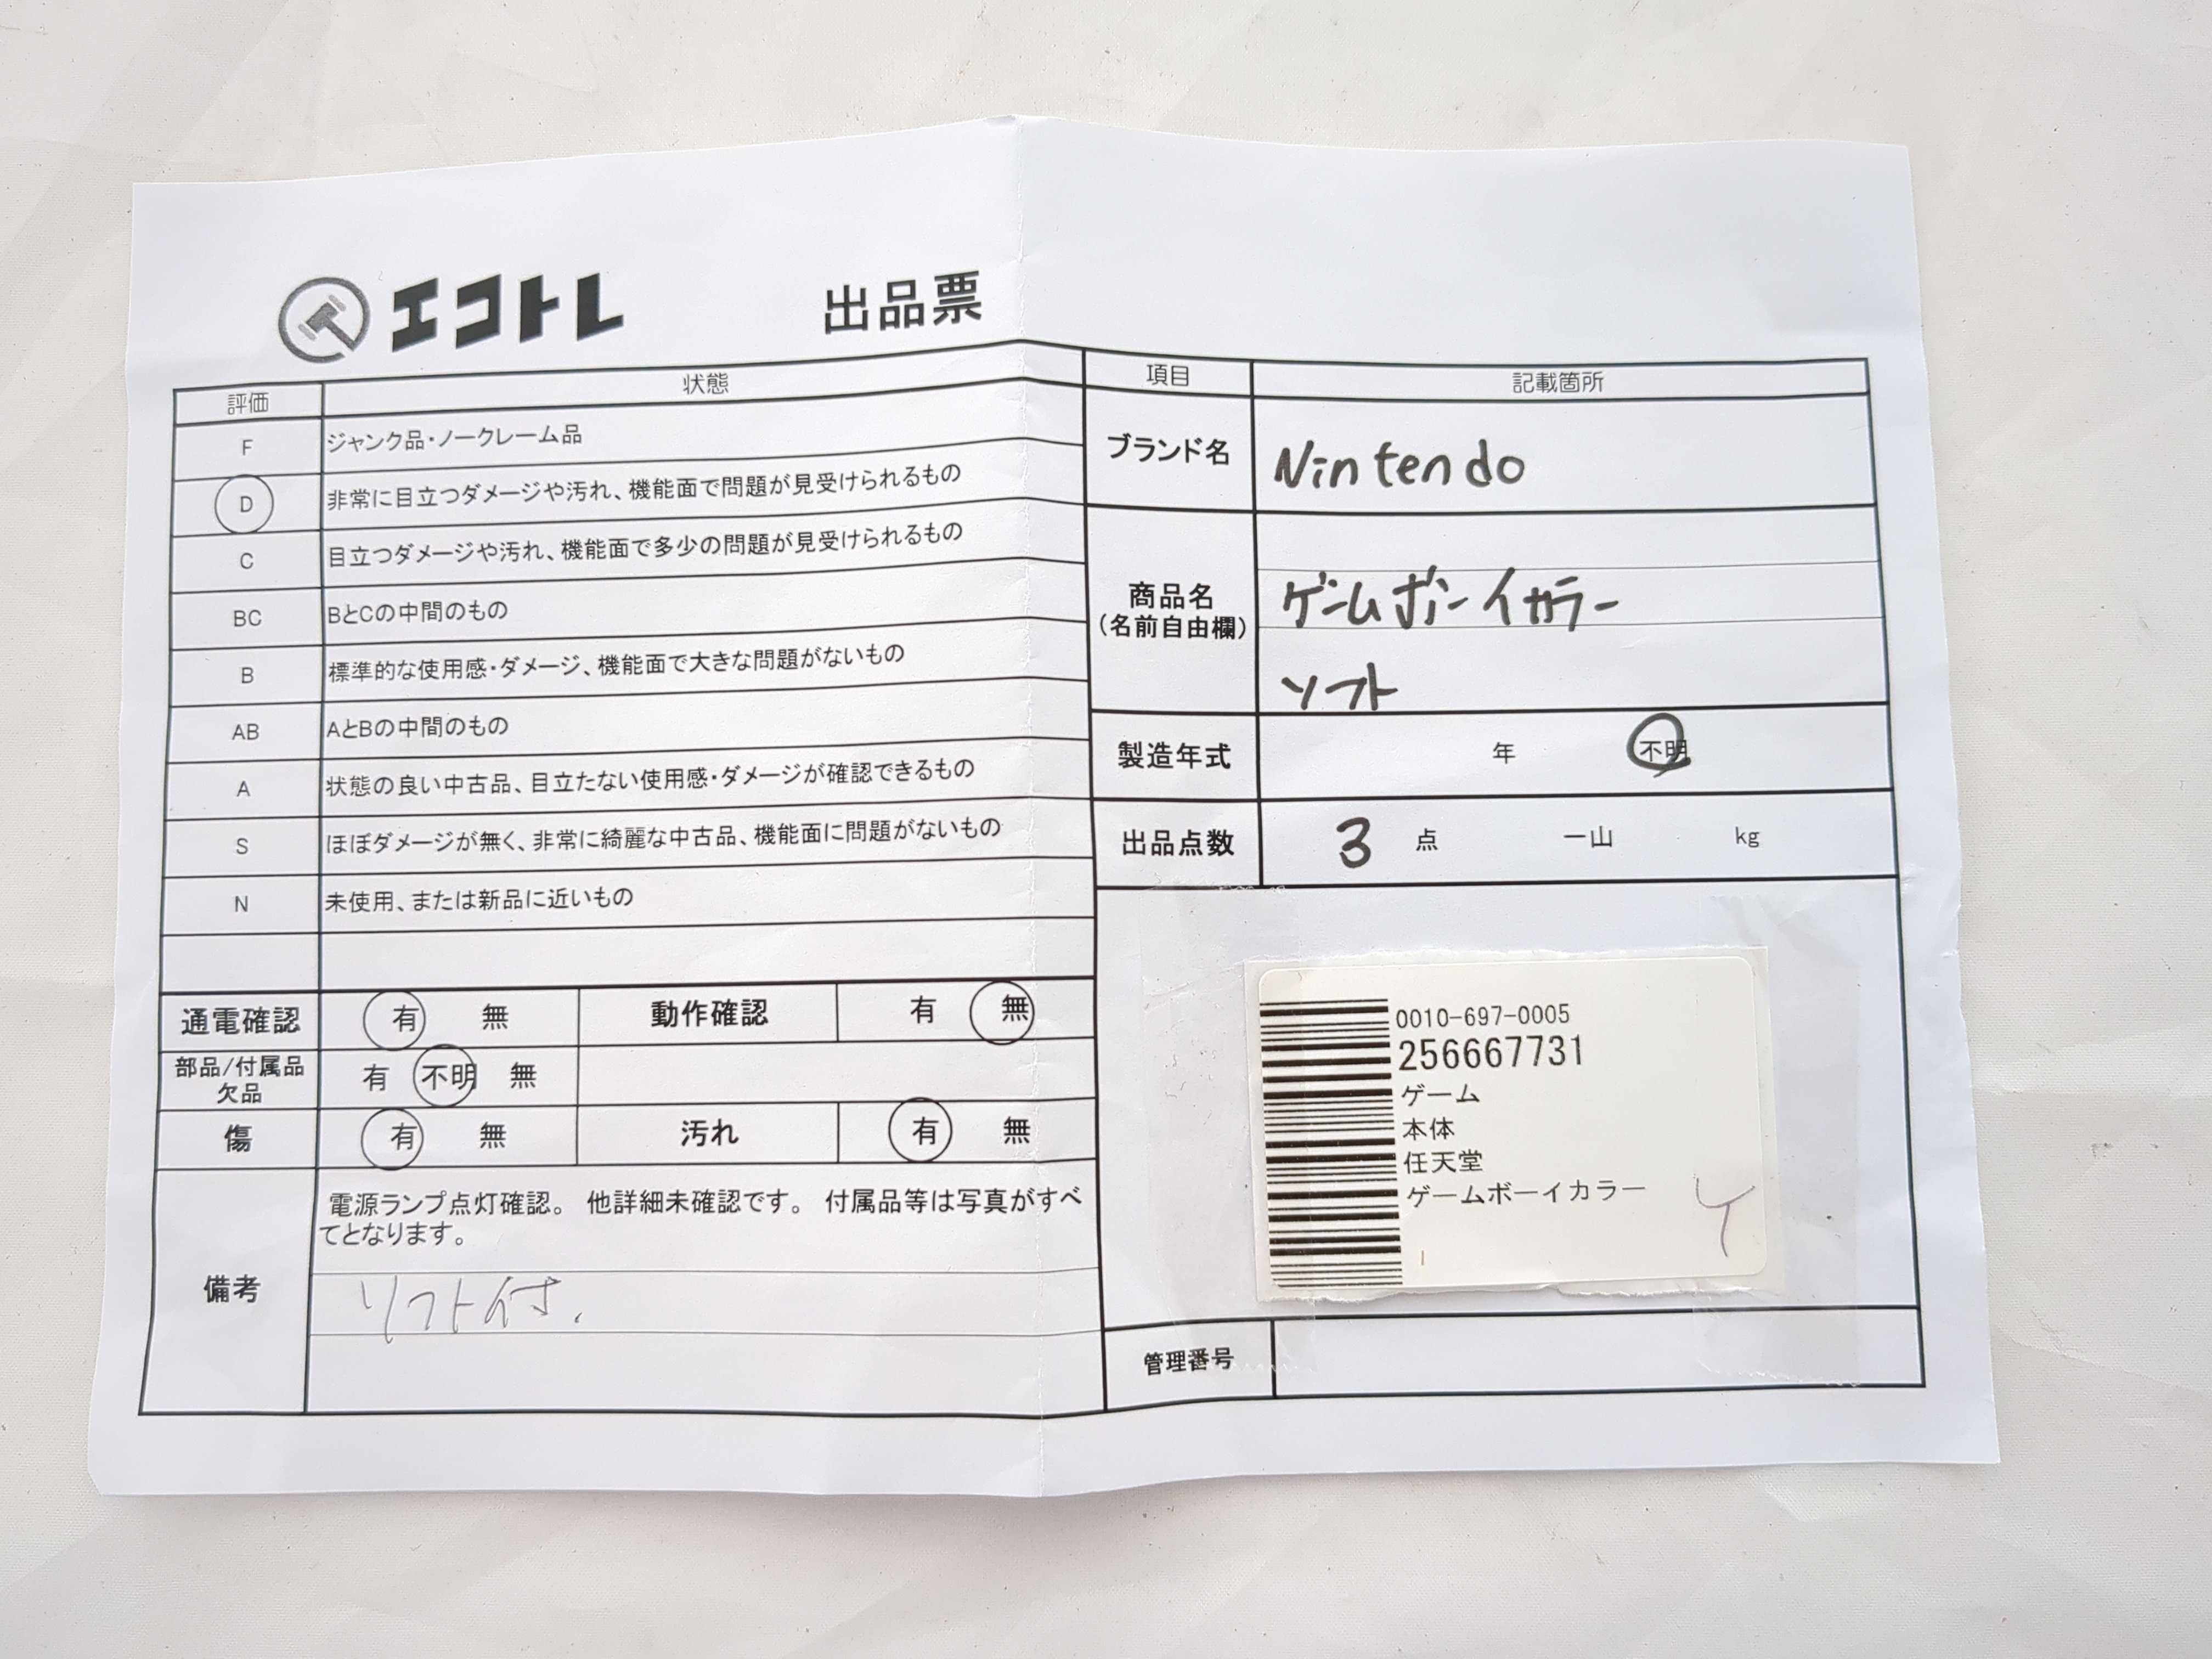 エコトレ 出品票
評価 状態
F ジャンク品・ノークレーム品
D 非常に目立つダメージや汚れ、機能面で問題が見受けられるもの
C 目立つダメージや汚れ、機能面で多少の問題が見受けられるもの
BC BとCの中間のもの
B 標準的な使用感・ダメージ、機能面で大きな問題がないもの
AB AとBの中間のもの
A 状態の良い中古品、目立たない使用感・ダメージが確認できるもの
S ほぼダメージが無く、非常に綺麗な中古品、機能面に問題がないもの
N 未使用、または新品に近いもの
通電確認 有 無 動作確認 有 無
部品/付属品
欠品
有 不明 無
傷 有 無 汚れ 有 無
備考
電源ランプ点灯確認。 他詳細未確認です。 付属品等は写真がすべ
てとなります。
ソフト付.
項目 記載箇所
ブランド名 Nintendo
商品名
(名前自由欄)
ゲームボーイカラー
ソフト
製造年式 年 不明
出品点数 3 点 一山 kg
0010-697-0005
256667731
ゲーム
本体
任天堂
ゲームボーイカラー
管理番号